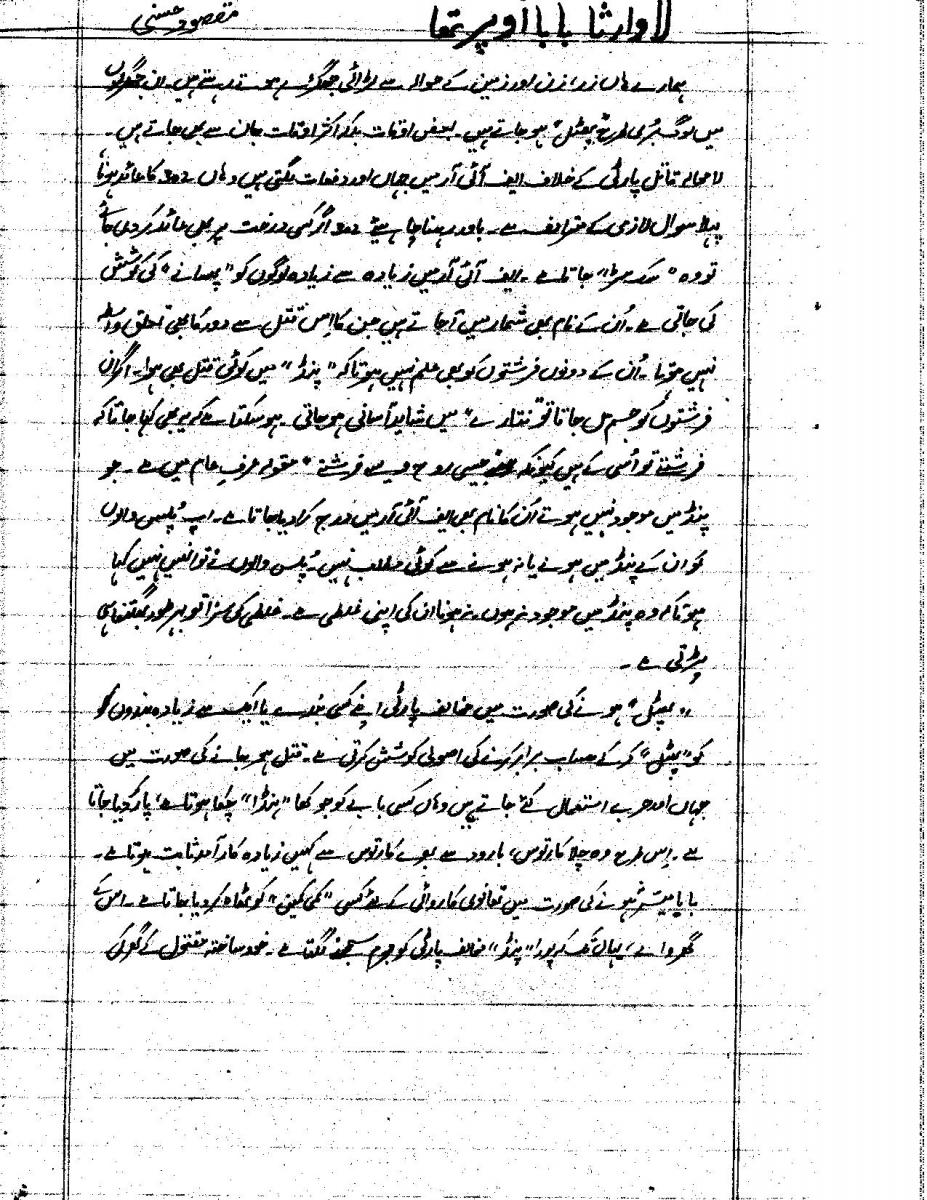 لاوارثا بابا اوپر تھا
مقصود حسنی
ہمارے ہاں زر، زن اور زمین کے حوالہ سے لڑائی جھگڑے ہوتے رہتے ہیں۔ ان جھگڑوں
میں لوگ بُری طرح "پھٹل" ہو جاتے ہیں۔ بعض اوقات بلکہ اکثر اوقات جان سے بھی جاتے ہیں۔
لامحالہ قاتل پارٹی کے خلاف ایف آئی آر میں جہاں اور دفعات لگتی ہیں وہاں 302 کا عائد ہونا
پہلا سوال لازمی کے مترادف ہے۔ باور رہنا چاہیئے 302 اگر کسی درخت پر بھی عائد کر دی جائے
تو وہ "سک سڑ" جاتا ہے۔ ایف آئی آر میں زیادہ سے زیادہ لوگوں کو "پھسانے" کی کوشش
کی جاتی ہے۔ اُن کے نام بھی شمار میں آ جاتے ہیں جن کا اِس قتل سے دور کا بھی تعلق واسطہ
نہیں ہوتا۔ اُن کے دونوں فرشتوں کو بھی علم نہیں ہوتا کہ "پنڈ" میں کوئی قتل بھی ہوا۔ اگر ان
فرشتوں کو جسم مل جاتا تو نتارے" میں شاید آسانی ہو جاتی۔ ہو سکتا ہے کہ یہ بھی کہا جاتا کہ
فرشتے تو اُسی کے ہیں کیونکہ جیسی روح ویسے فرشتے" مقولہ عرفِ عام میں ہے۔ جو
پنڈ میں موجود نہیں ہوتے اُن کا نام بھی ایف آئی آر میں درج کرا دیا جاتا ہے۔ اب پُلیس والوں
کو ان کے پنڈ میں ہونے یا نہ ہونے سے کوئی مطلب نہیں۔ پُلس والوں نے تو انہیں نہیں کہا
ہوتا کہ وہ پنڈ میں موجود نہ ہوں۔ نہ ہونا ان کی اپنی غلطی ہے۔ غلطی کی سزا تو بہرطور بھگتنا ہی
پڑتی ہے۔
"پھٹل" ہونے کی صورت میں مخالف پارٹی اپنے کسی بندے یا ایک سے زیادہ بندوں کو
کو "پھٹل" کر کے حساب برابر کرنے کی اصولی کوشش کرتی ہے۔ قتل ہو جانے کی صورت میں
جہاں اور حربے استعمال کئے جاتے ہیں وہاں کسی بابے کو جو کھا "ہنڈا" چکا ہوتا ہے، پار کر دیا جاتا
ہے۔ اِس طرح وہ چلا کارتوس، بارود سے بھرے کارتوس سے کہیں زیادہ کارآمد ثابت ہوتا ہے۔
بابا میسر نہ ہونے کی صورت میں قانونی کاروائی کے لئے کسی "کمی کمین" کو ٹھاہ کر دیا جاتا ہے۔ اس کے
گھر والے، یہاں تک کہ پورا "پنڈ" مخالف پارٹی کو مجرم سمجھنے لگتا ہے۔ خود ساختہ مقتول کے گھر کی